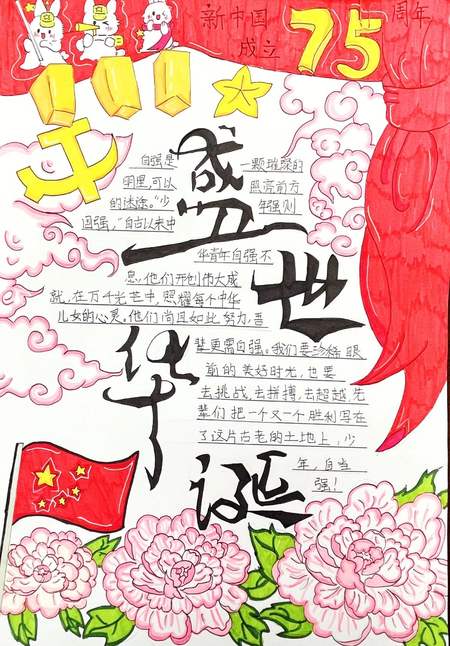 新中国 75 周年
成立
盛世华诞
自强是 一颗璀璨的
明里,可以 照亮前方
的迷途。“少 年强则
国强,”自古以来中
华青年自强不
息,他们开创伟大成
就,在万千光芒中,照耀每个中华
儿女的心灵。他们尚且如此努力,吾
辈更需自强。我们要珍惜眼
前的美好时光,也要
去挑战,去拼搏,去超越,先
辈们把一个又一个胜利写在
了这片古老的土地上,少
年,自当
强!